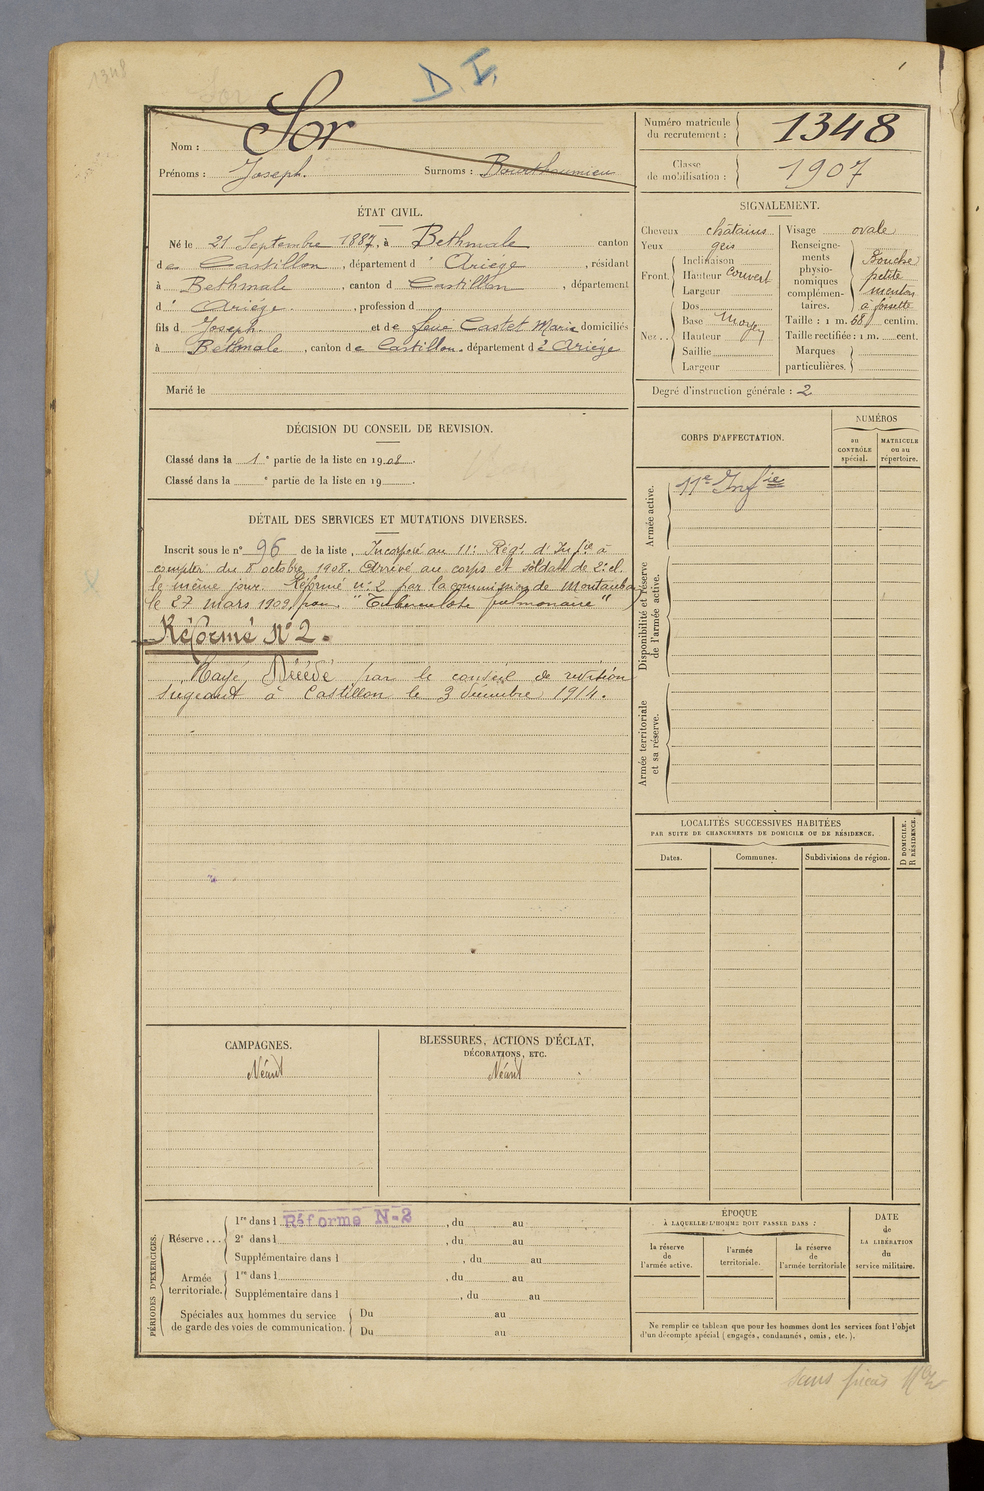 1348
D. I.
Nom : Sor
Prénoms : Joseph. Surnoms : Bourthoumieu
Numéro matricule du recrutement : 1348
Classe de mobilisation : 1907
ÉTAT CIVIL.
Né le 21 Septembre 1887, à Bethmale canton
de Castillon, département d' Ariége, résidant
à Bethmale, canton d Castillon, département
d' Ariége, profession d
fils d Joseph et de Castet Marie domiciliés
à Bethmale, canton de Castillon. département d Ariége
Marié le
SIGNALEMENT.
Cheveux châtains
Yeux gris
Front. Inclinaison
Hauteur couvert
Largeur
Nez.. Dos
Base Moyen
Hauteur
Saillie
Largeur
Visage ovale
Renseignements physionomiques complémentaires. Bouche petite menton à fossette
Taille : 1 m. 68 centim.
Taille rectifiée : 1 m. cent.
Marques particulières.
Degré d'instruction générale : 2
DÉCISION DU CONSEIL DE REVISION.
Classé dans la 1e partie de la liste en 1908.
Classé dans la e partie de la liste en 19 .
DÉTAIL DES SERVICES ET MUTATIONS DIVERSES.
Inscrit sous le n° 96 de la liste. Incorporé au 11e Régt d'Infie à
compter du 8 octobre 1908. Arrivé au corps et soldat de 2e cl.
le même jour. Réformé n° 2 par la commission de Montauban
le 27 mars 1909, pour "Tuberculose pulmonaire"
Réformé N° 2.
Rayé, Décédé par le conseil de révision
siégeant à Castillon le 3 décembre 1914.
CORPS D'AFFECTATION.
NUMÉROS
au CONTRÔLE spécial.
MATRICULE ou au répertoire.
Armée active. 11e Infie
Disponibilité et réserve de l'armée active.
Armée territoriale et sa réserve.
LOCALITÉS SUCCESSIVES HABITÉES
PAR SUITE DE CHANGEMENTS DE DOMICILE OU DE RÉSIDENCE.
D DOMICILE.
R RÉSIDENCE.
Dates. Communes. Subdivisions de région.
CAMPAGNES.
Néant
BLESSURES, ACTIONS D'ÉCLAT,
DÉCORATIONS, ETC.
Néant
PÉRIODES D'EXERCICES.
Réserve... 1re dans l Réformé N-2, du au
2e dans l , du au
Supplémentaire dans l , du au
Armée territoriale. 1re dans l , du au
Supplémentaire dans l , du au
Spéciales aux hommes du service de garde des voies de communication. Du au
Du au
ÉPOQUE
À LAQUELLE L'HOMME DOIT PASSER DANS :
la réserve de l'armée active.
l'armée territoriale.
la réserve de l'armée territoriale
DATE de LA LIBÉRATION du service militaire.
Ne remplir ce tableau que pour les hommes dont les services font l'objet
d'un décompte spécial (engagés, condamnés, omis, etc.).